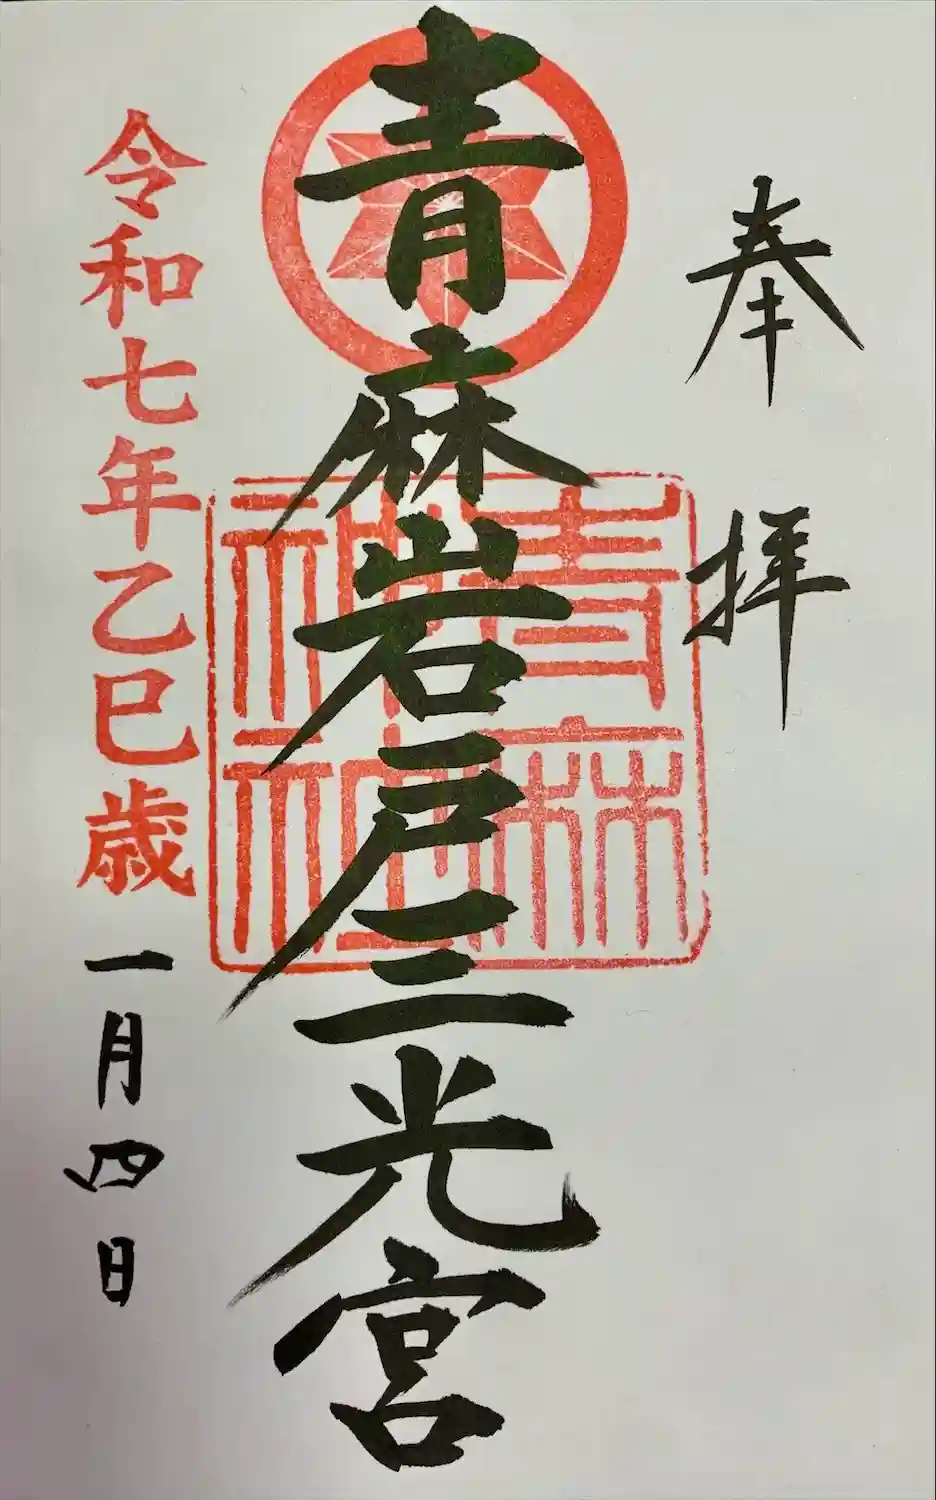 奉拝
青麻岩戸三光宮
青麻神社
令和七年乙巳歳一月四日